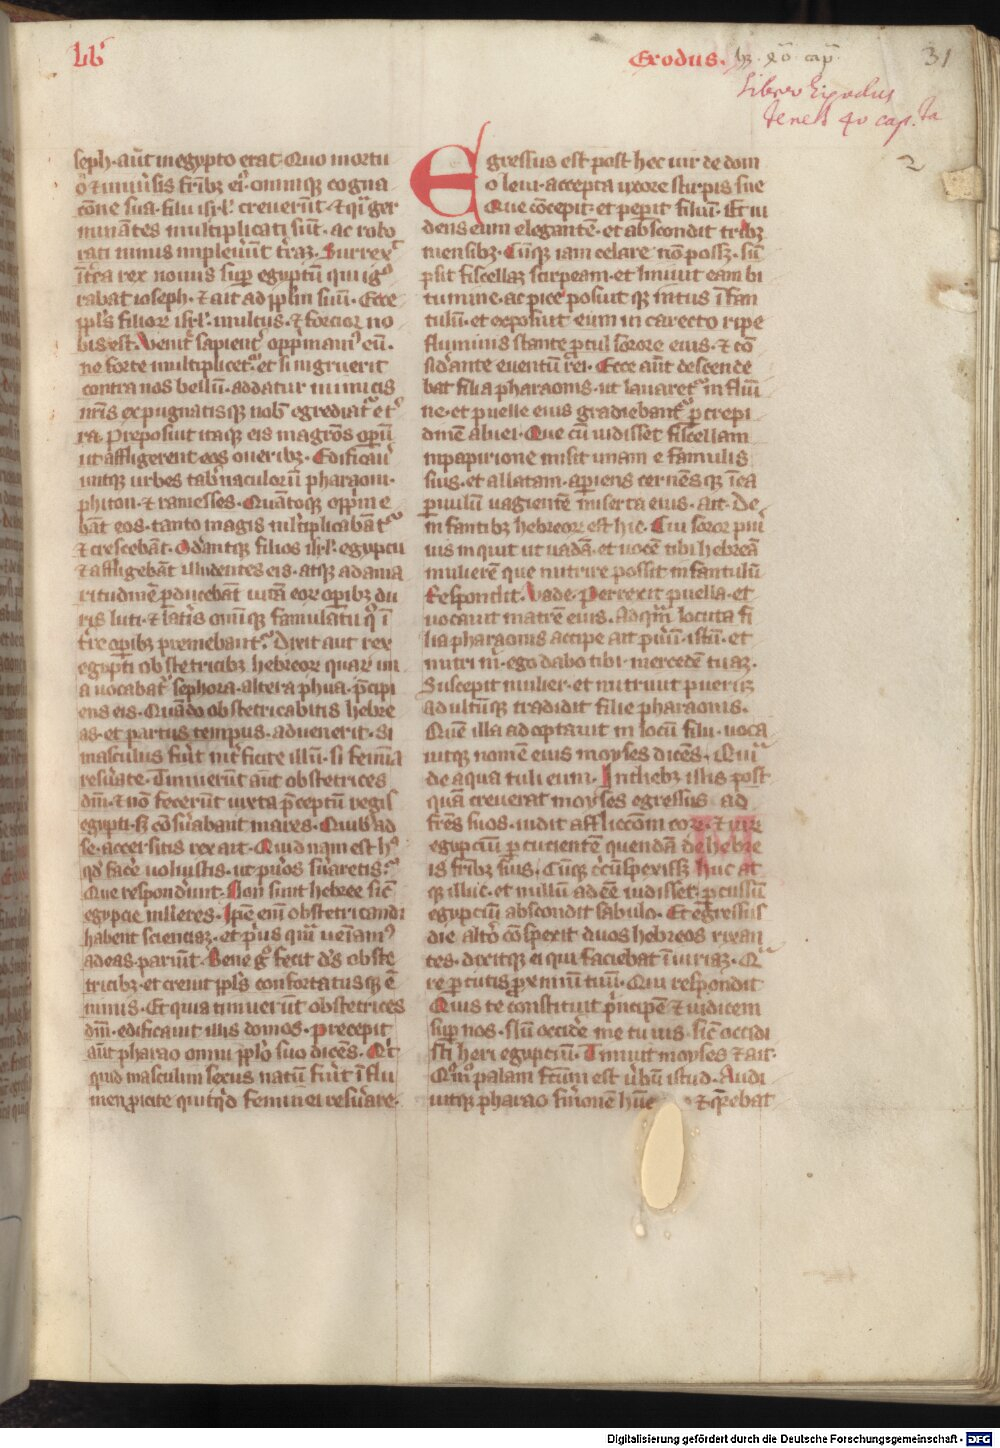 Lib'
Exodus. hz xō cap̄
31
Liber Exodus
tenet 40 cap.ta
2
seph·aūt in egypto erat·Quo mortu
o ⁊ uniu'sis frībꝫ ei'·omniqꝫ cogna
cōne sua·filii isr̄l' creuerūt·⁊ q̄si ger
minātes multiplicati sūt·ac robo
rati nimis impleuer̄ūt t'raꝫ·Surrex'
īt'ea rex nouus sup̄ egyptū qui ig°
rabat ioseph·⁊ ait ad ppl̄m suū·Ecce
ppl's filiorꝝ isr̄l'·multus·⁊ forcior no
bis est·Venite sapient' oppͥmam' eū·
ne forte multiplicet᷑·et si ingruerit
contra nos bellū·addatur inimicis
nr̄is expugnatisqꝫ nob̄ egrediat᷑ e t'
ra·Preposuit itaqꝫ eis magr̄os opeꝝ
ut affligerent eos oneribꝫ·Edificau'
untqꝫ urbes tab'naculorū pharaoni·
phiton·⁊ ramesses·Quātoqꝫ oppͥme
bāt eos·tanto magis ml'tiplicabāt᷑
⁊ crescebāt·Od'antqꝫ filios isr̄l'·egypcii
⁊ affligebāt illudentes eis·atqꝫ ad ama
ritudinē p̄ducebāt uitā eorꝝ op̄ibꝫ du
ris luti·⁊ lat'is om̄iqꝫ famulatu q° ī
t're op̄ibꝫ premebant᷑·Dixit aut rex
egypti obstetricibꝫ hebreorꝝ quarꝝ un
a uocabat᷑ sephora·altera phua·p̄cipi
ens eis·Quādo obstetricabitis hebre
as·et partus tempus·aduenerit·Si
masculus fu'it int'ficite illū·si femina
res'uate·Timuerūt aūt obstetrices
dm̄·⁊ nō fecerūt iuxta p̄ceptū regis
egypti·sꝫ cōs'uabant mares·Quibꝫ ad
se·accersitis rex ait·Quid nam est h°
qd' fac'e uoluistis·ut pu'os s'uaretis·
Que respond'unt·Non sunt hebree sic̄
egypcie ml'ieres·Ipē eni obstetricandi
habent scienciaꝫ·et pͥus qua ueniam'
ad eas pariūt·Bene g° fecit d's obste
tricibꝫ·et creuit ppl's confortatusqꝫ ē
nimis·Et quia timuerūt obstetrices
dm̄·edificauit illis domos·Precepit
aūt pharao omni ppl'o suo dicēs·Q't
quid masculini sexus natū fu'it ī flu
men proicite quitqd' feminei res'uate·
Egressus est post hec uir de dom
o leui·accepta uxore stirpis sue
Que cōcepit·et pepit filiū·Et ui
dens eum elegantē·et abscondit tribꝫ
mensibꝫ·Cūqꝫ iam celare nō possꝫ·sū
psit fiscellaꝫ scirpeam·et liniuit eam bi
tumine·ac pice posuitqꝫ intus ī fan
tulū·et exposuit eum in carecto ripe
fluminis stante p̄cul sorore eius·⁊ cō
sid'ante euentū rei·Ecce aūt descende
bat filia pharaonis·ut lauaret᷑ in flui
ne·et puelle eius gradiebant᷑ p̄ crepi
dinē aluei·Que cū uidisset fiscellam
in papirione misit unam e famulis
suis·et allatam·ap̄iens cernēsqꝫ ī ea
paruulū uagientē miserta eius·ait·De
in fantibꝫ hebreorꝝ est hic·Cui soror pu'i
uis inquit ut uadā·et uocē tibi hebreā
mulierē que nutrire possit in fantulū
Respondit·Vade·Perrexit puella·et
uocauit matrē eius·Ad quā locuta fi
lia pharaonis accipe ait pu'ū·istū·et
nutri m̄·ego dabo tibi·mercedē tuaꝫ·
Suscepit mulier·et nutriuit pueꝝ
adultūqꝫ tradidit filie pharaonis·
Quē illa adoptauit in locū filii·uoca
uitqꝫ nomē eius moyses dicēs·Quia
de aqua tuli eum·In diebꝫ illis post
quā creuerat moyses egressus ad
fr̄es suos·uidit afflicc̄om eorꝝ·⁊ uirꝝ
egypciū p̄cutientē quendā de hebre
is fr̄ibꝫ suis·Cūqꝫ c'cūspexissꝫ huc at
qꝫ illuc·et nullū adeē uidisset·p̄cussū
egypciū abscondit sabulo·Et egressus
die alt'o cōspexit duos hebreos rixan
tes·dixitqꝫ ei qui faciebat īiuriaꝫ·Qua
re p̄cutis proximū tuū·Qui respondit
Quis te constituit pͥncipē ⁊ iudicem
sup̄ nos·Nū occid'e me tu uis·sic̄ occidi
sti heri egypciū·Timuit moyses ⁊ ait·
Qm̄° palam fc̄um est u'bū istud·Audi
uitqꝫ pharao s'monē hūc ⁊ q̄rebat
Digitalisierung gefördert durch die Deutsche Forschungsgemeinschaft - DFG